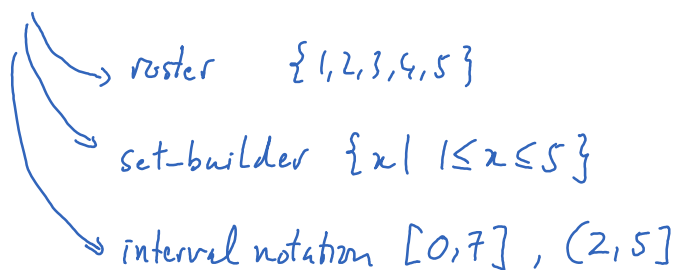 roster {1,2,3,4,5}
set-builder {x| 1≤x≤5}
interval notation [0,7] , (2,5]